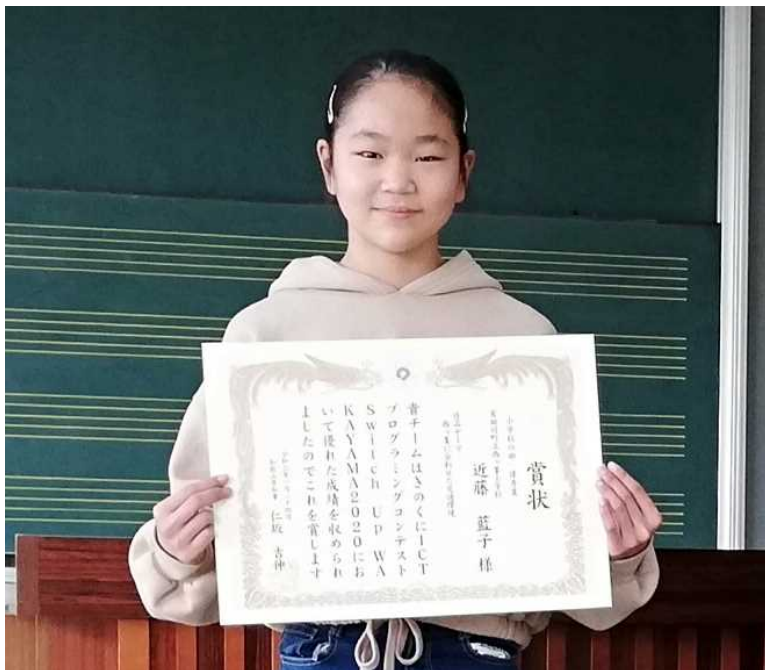 賞状
小学校の部 優秀賞
近藤 藍子 様
貴チームはきのくにICT
プログラミングコンテスト
Switch Up WA
KAYAMA2020にお
いて優れた成績を収められ
ましたのでこれを賞します
和歌山県知事 仁坂 吉伸